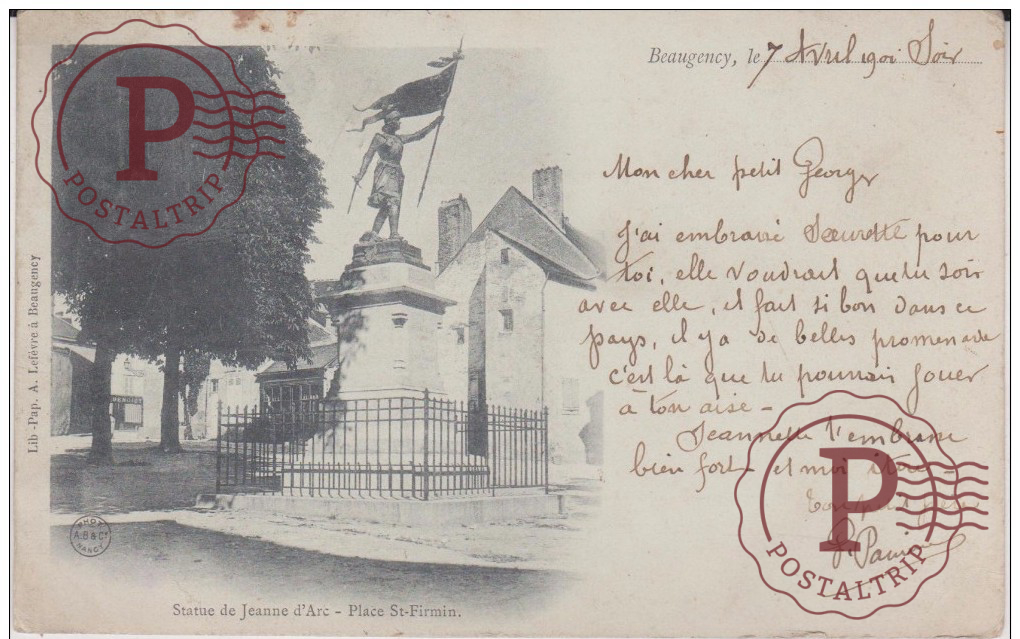 Beaugency, le 7 Avril 1901 Soir
Mon cher petit Georges
J'ai embrassé Soeurette pour
toi, elle voudrait que tu sois
avec elle, il fait si bon dans ce
pays, il y a de belles promenade
c'est là que tu pourrais jouer
à ton aise -
Jeannette t'embrasse
bien fort et moi
ton
P
POSTALTRIP
P
POSTALTRIP
Lib-Pap. A. Lefèvre à Beaugency
PHOT
A.B & Cie
NANCY
Statue de Jeanne d'Arc - Place St-Firmin.